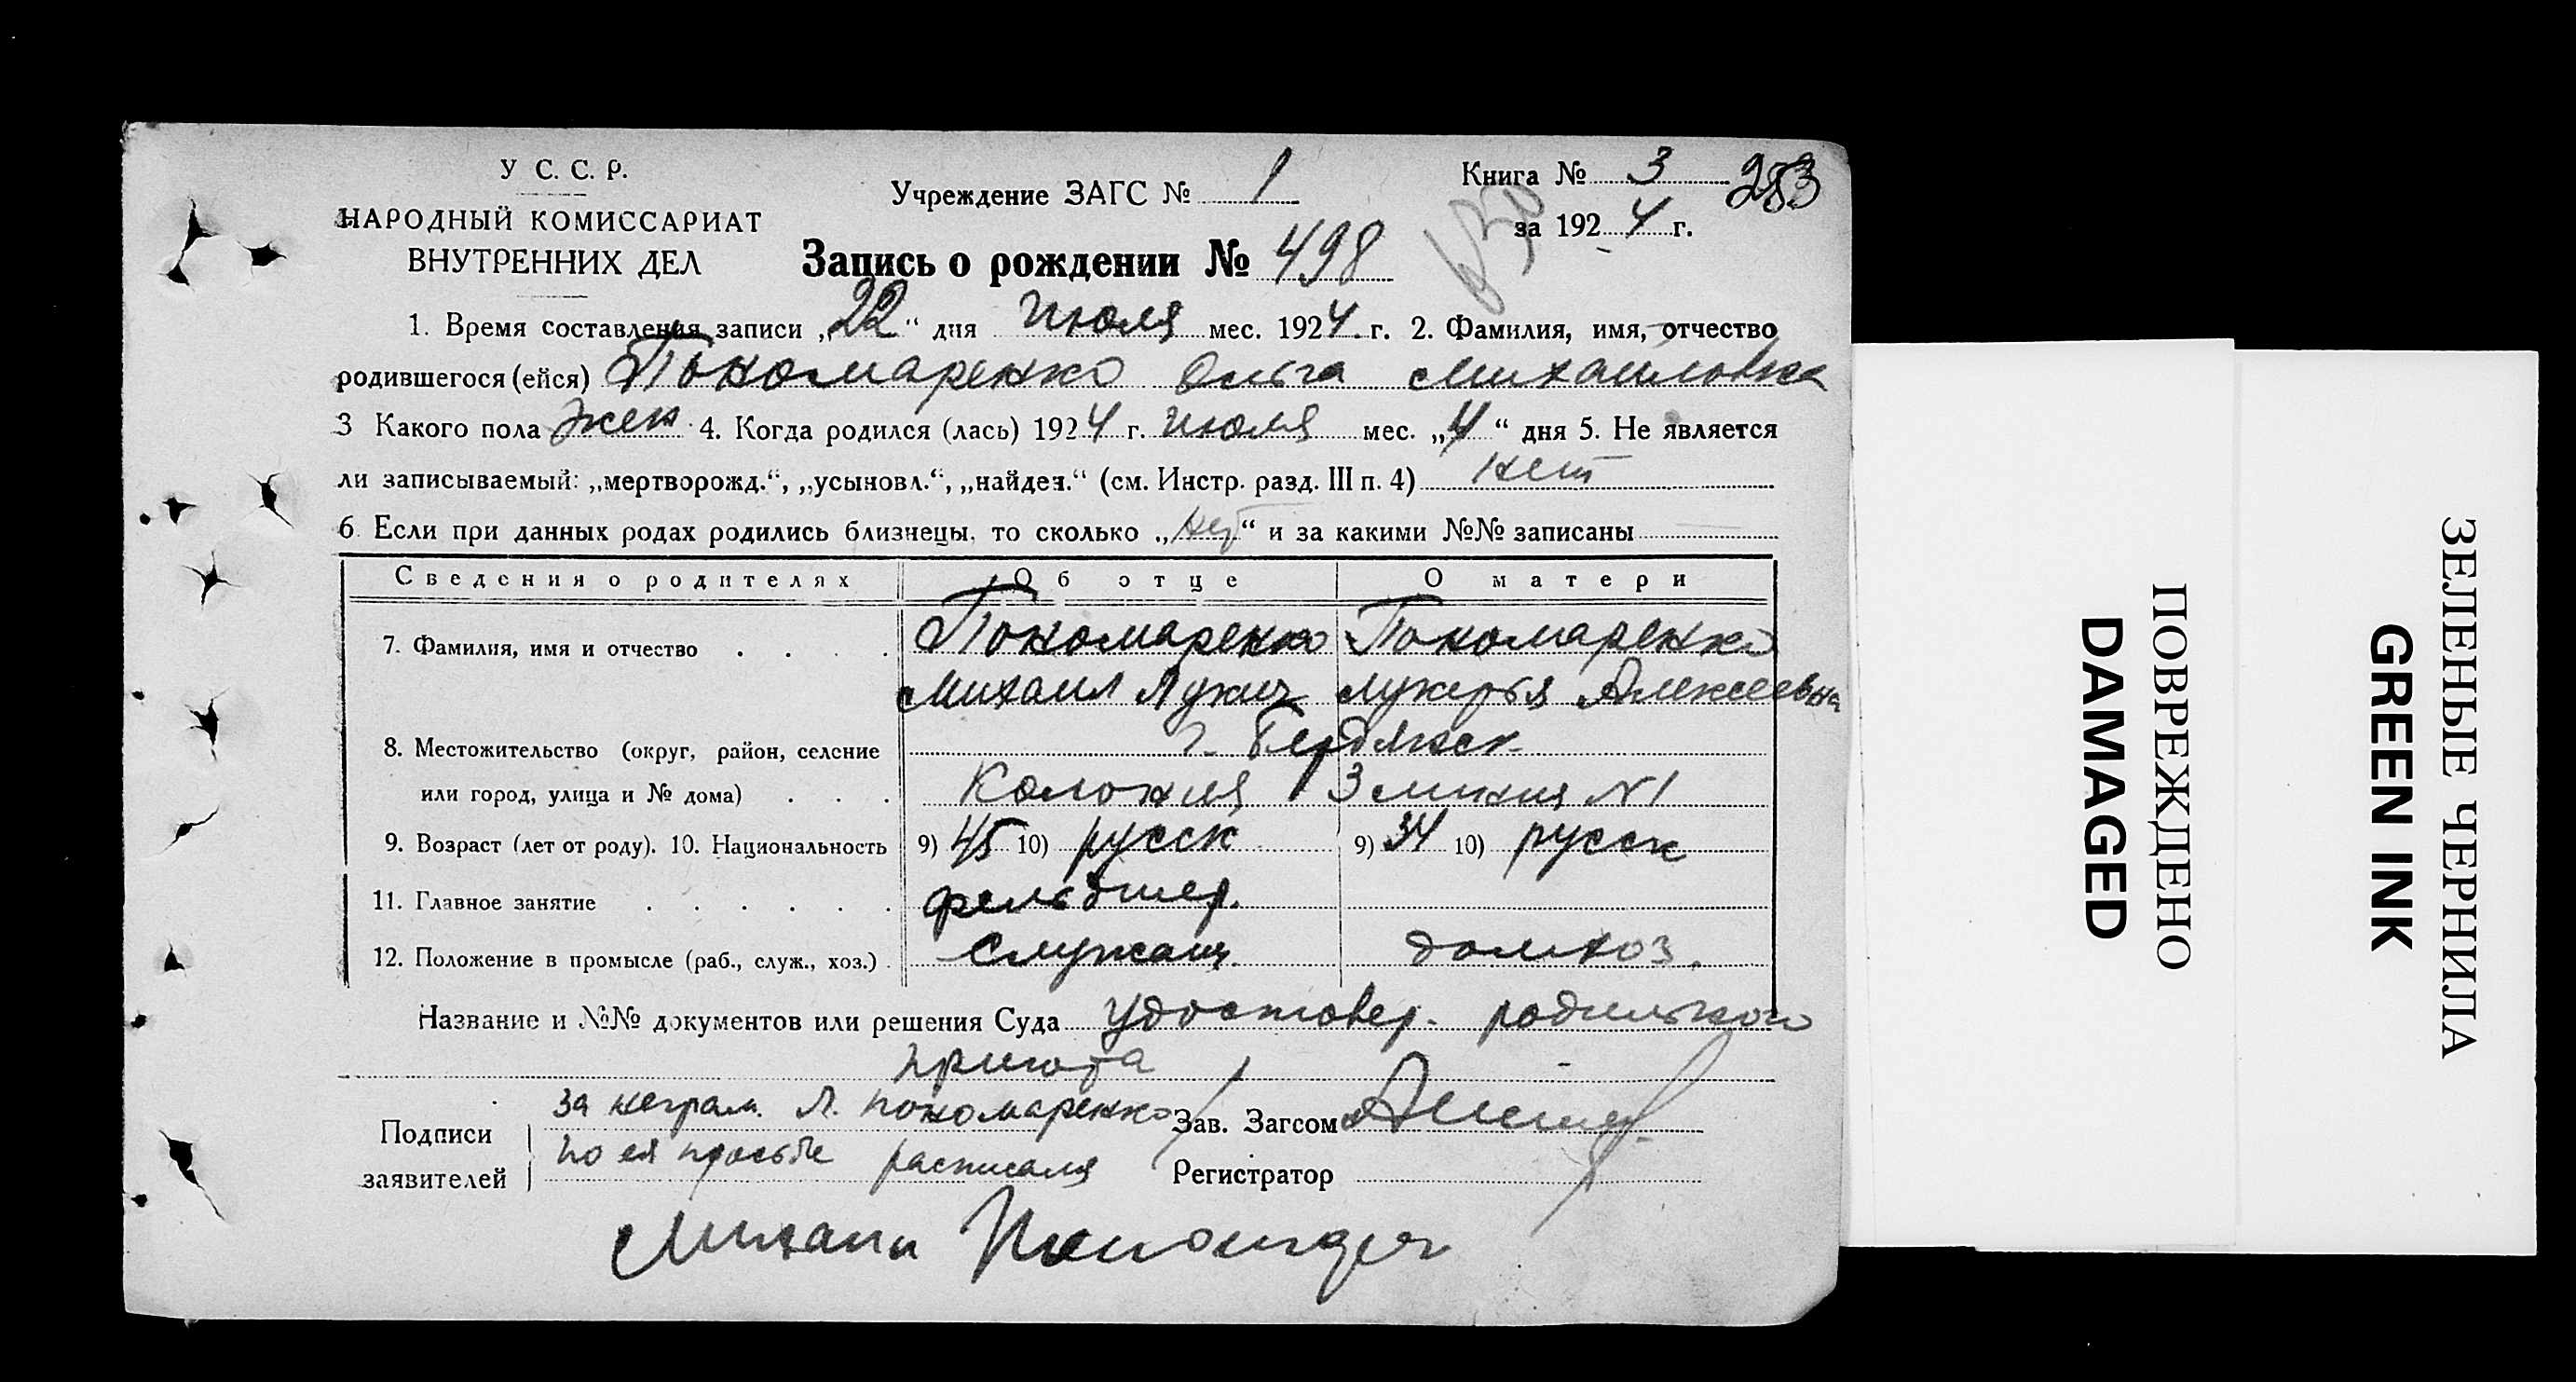 У С. С. Р.
НАРОДНЫЙ КОМИССАРИАТ
ВНУТРЕННИХ ДЕЛ
Учреждение ЗАГС № 1
Книга № 3
за 1924 г.
Запись о рождении № 498
1. Время составления записи „22“ дня июля мес. 1924 г. 2. Фамилия, имя, отчество
родившегося (ейся) Пономаренко Ольга Михайловна
3 Какого пола жен. 4. Когда родился (лась) 1924 г. июля мес. „4“ дня 5. Не является
ли записываемый: „мертворожд.“, „усыновл.“, „найден.“ (см. Инстр. разд. III п. 4) нет
6. Если при данных родах родились близнецы, то сколько „нет“ и за какими №№ записаны
Сведения о родителях Об отце О матери
7. Фамилия, имя и отчество . . . . Пономаренко Пономаренко
Михаил Лукич Лукерья Алексеевна
8. Местожительство (округ, район, селение г. Бердянск
или город, улица и № дома) . . . Колония 3 линия N 1
9. Возраст (лет от роду). 10. Национальность 9) 45 10) русск 9) 34 10) русск
11. Главное занятие . . . . . . фельдшер.
12. Положение в промысле (раб., служ., хоз.) . служащ. домхоз.
Название и №№ документов или решения Суда удостовер. родильного
приюта
за неграм. Л. Пономаренко
по ея просьбе расписался
Подписи
заявителей
Зав. Загсом
Регистратор
Михаил
ПОВРЕЖДЕНО
DAMAGED
ЗЕЛЕНЫЕ ЧЕРНИЛА
GREEN INK